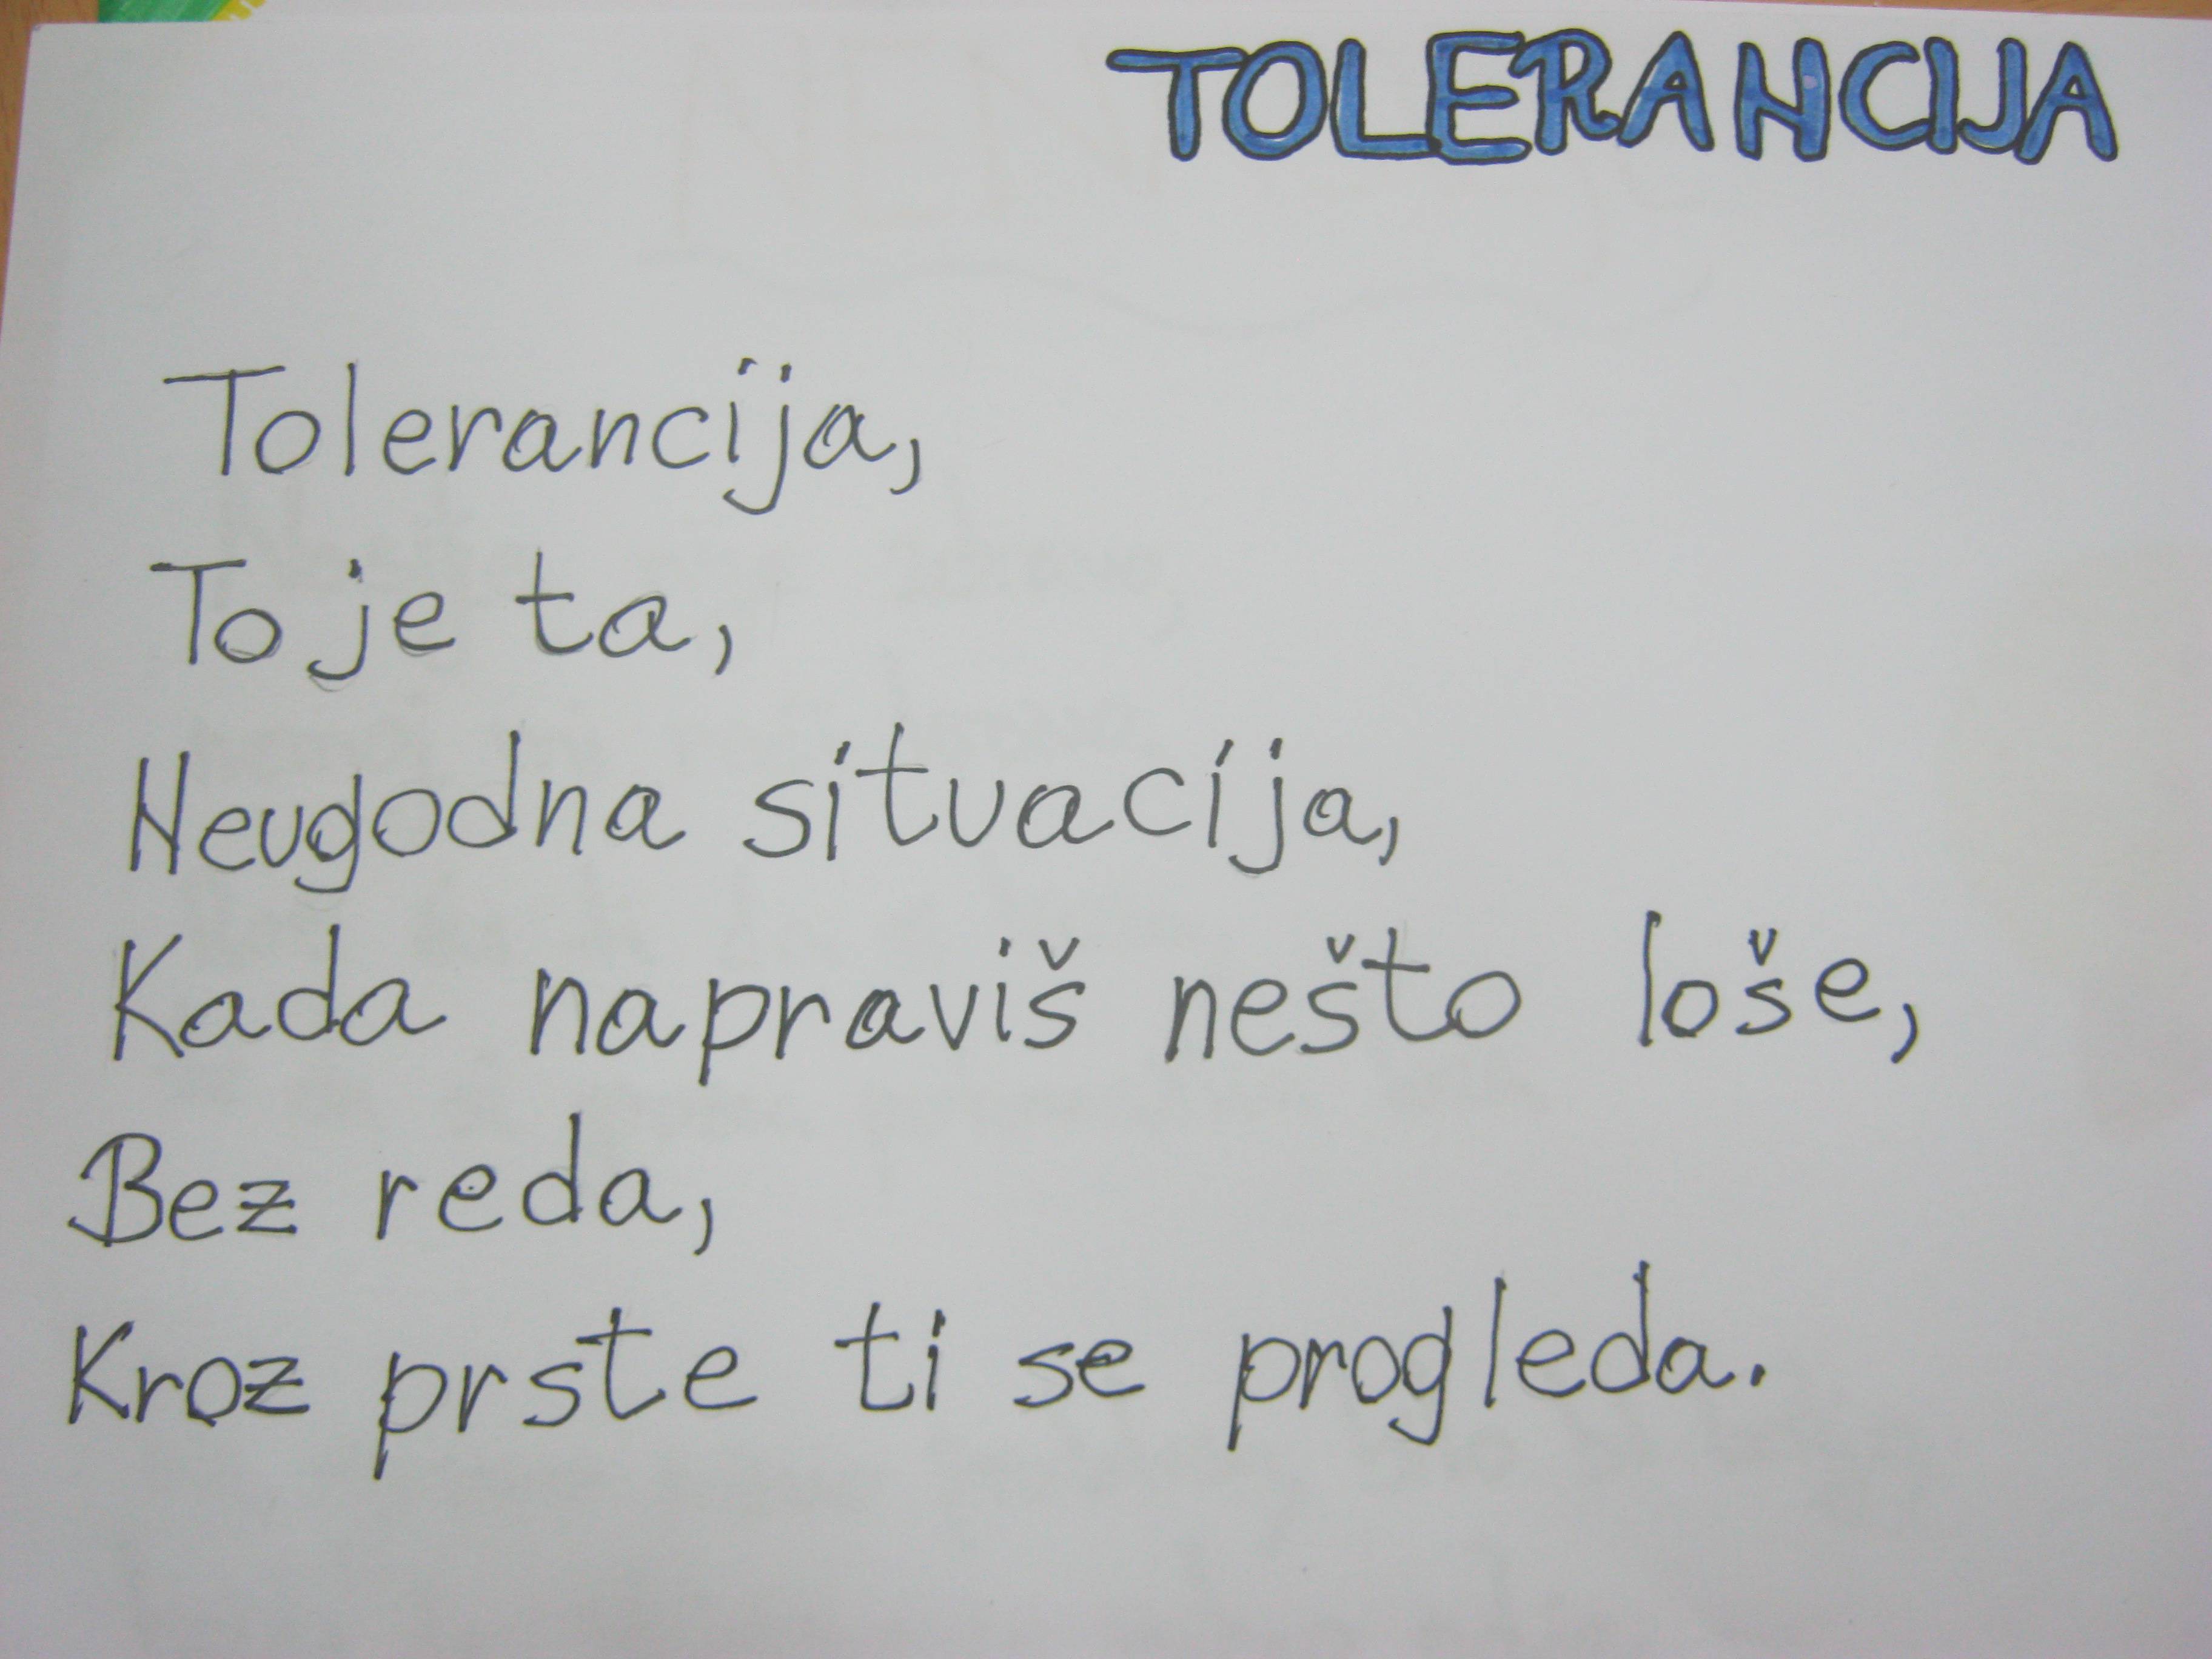 TOLERANCIJA
Tolerancija,
To je ta,
Neugodna situacija,
Kada napraviš nešto loše,
Bez reda,
Kroz prste ti se progleda.